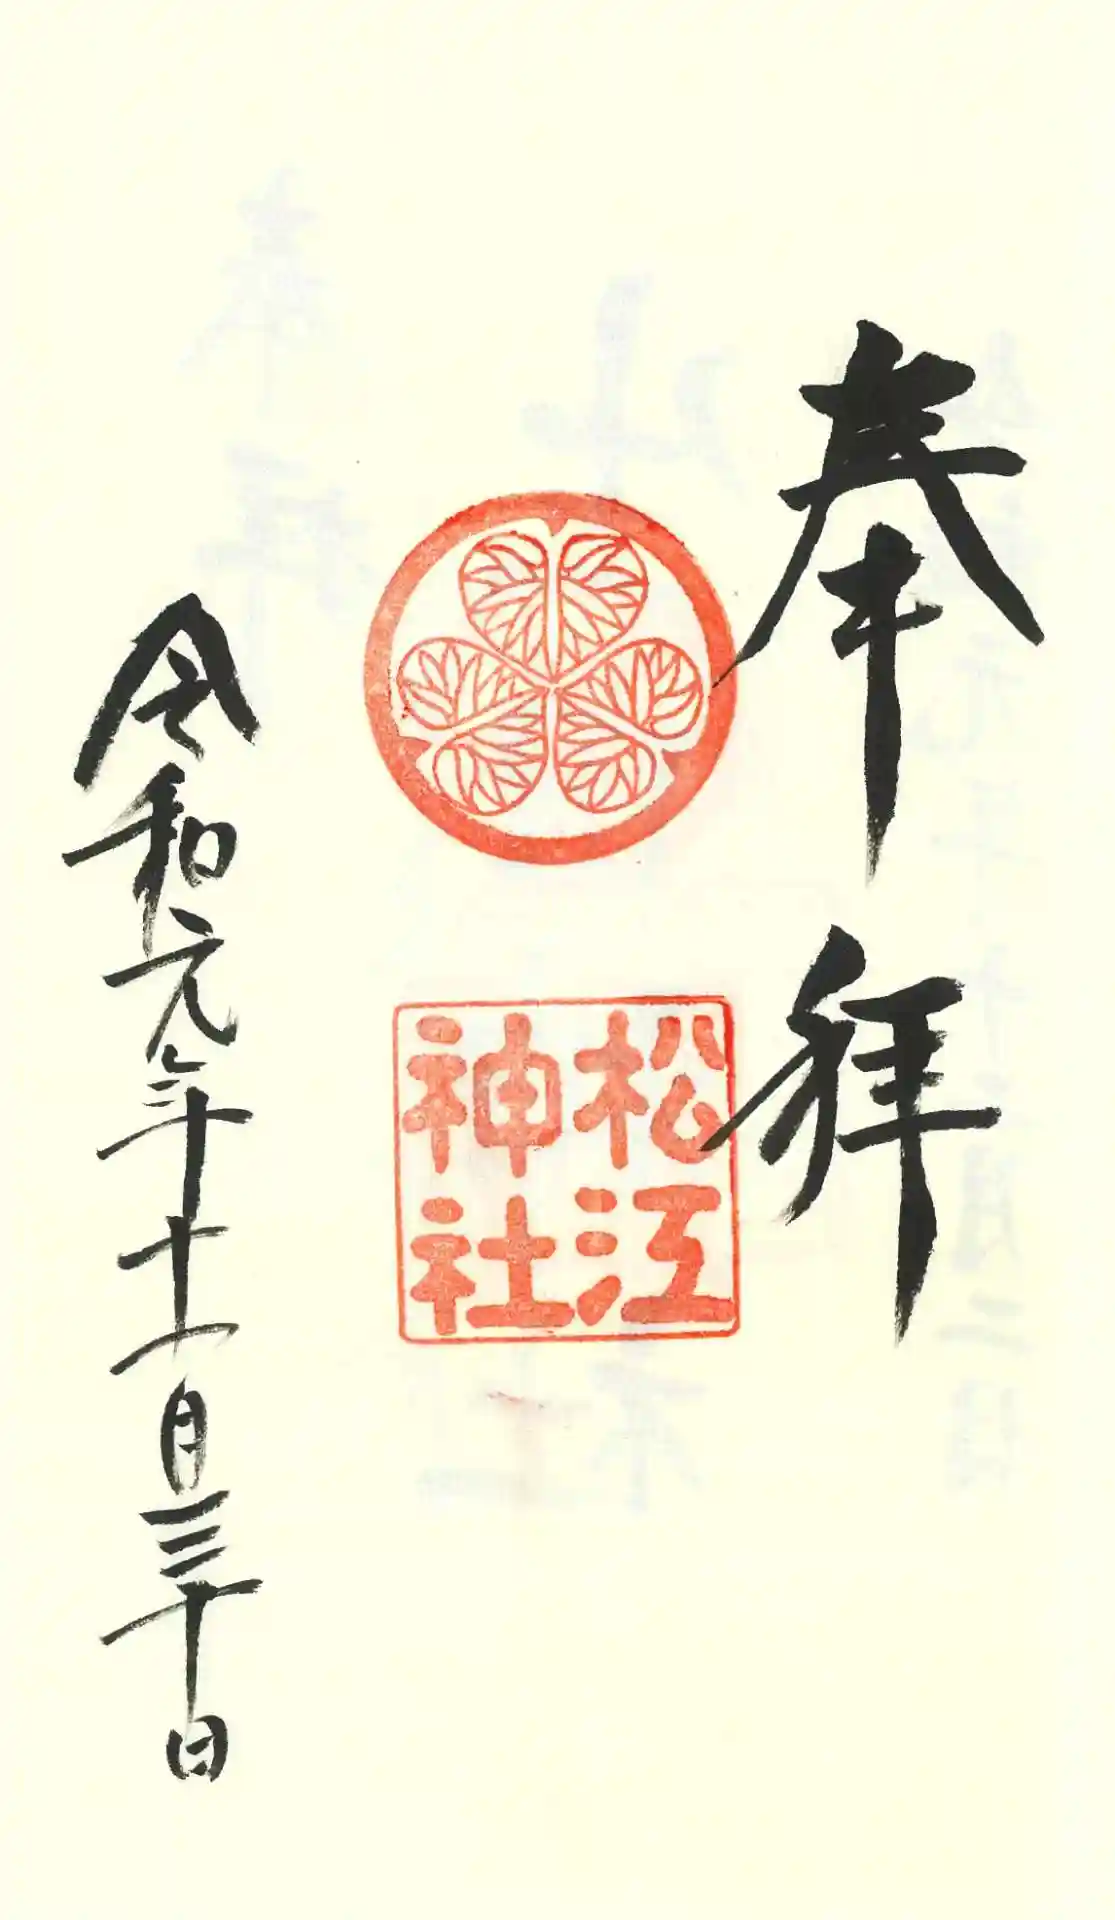 奉拝
松江
神社
令和元年十一月三十日